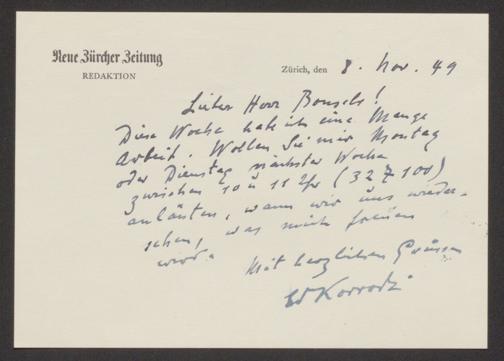 Neue Zürcher Zeitung
REDAKTION
Zürich, den 8. Nov. 49
Lieber Herr Bonsels!
Diese Woche habe ich eine Menge
Arbeit. Wollen Sie mir Montag
oder Dienstag nächster Woche
zwischen 10 u 11 Uhr (327100)
anläuten, wann wir uns wieder-
sehen, was mich freuen
wird.
Mit herzlichen Grüssen
Ed Korrodi